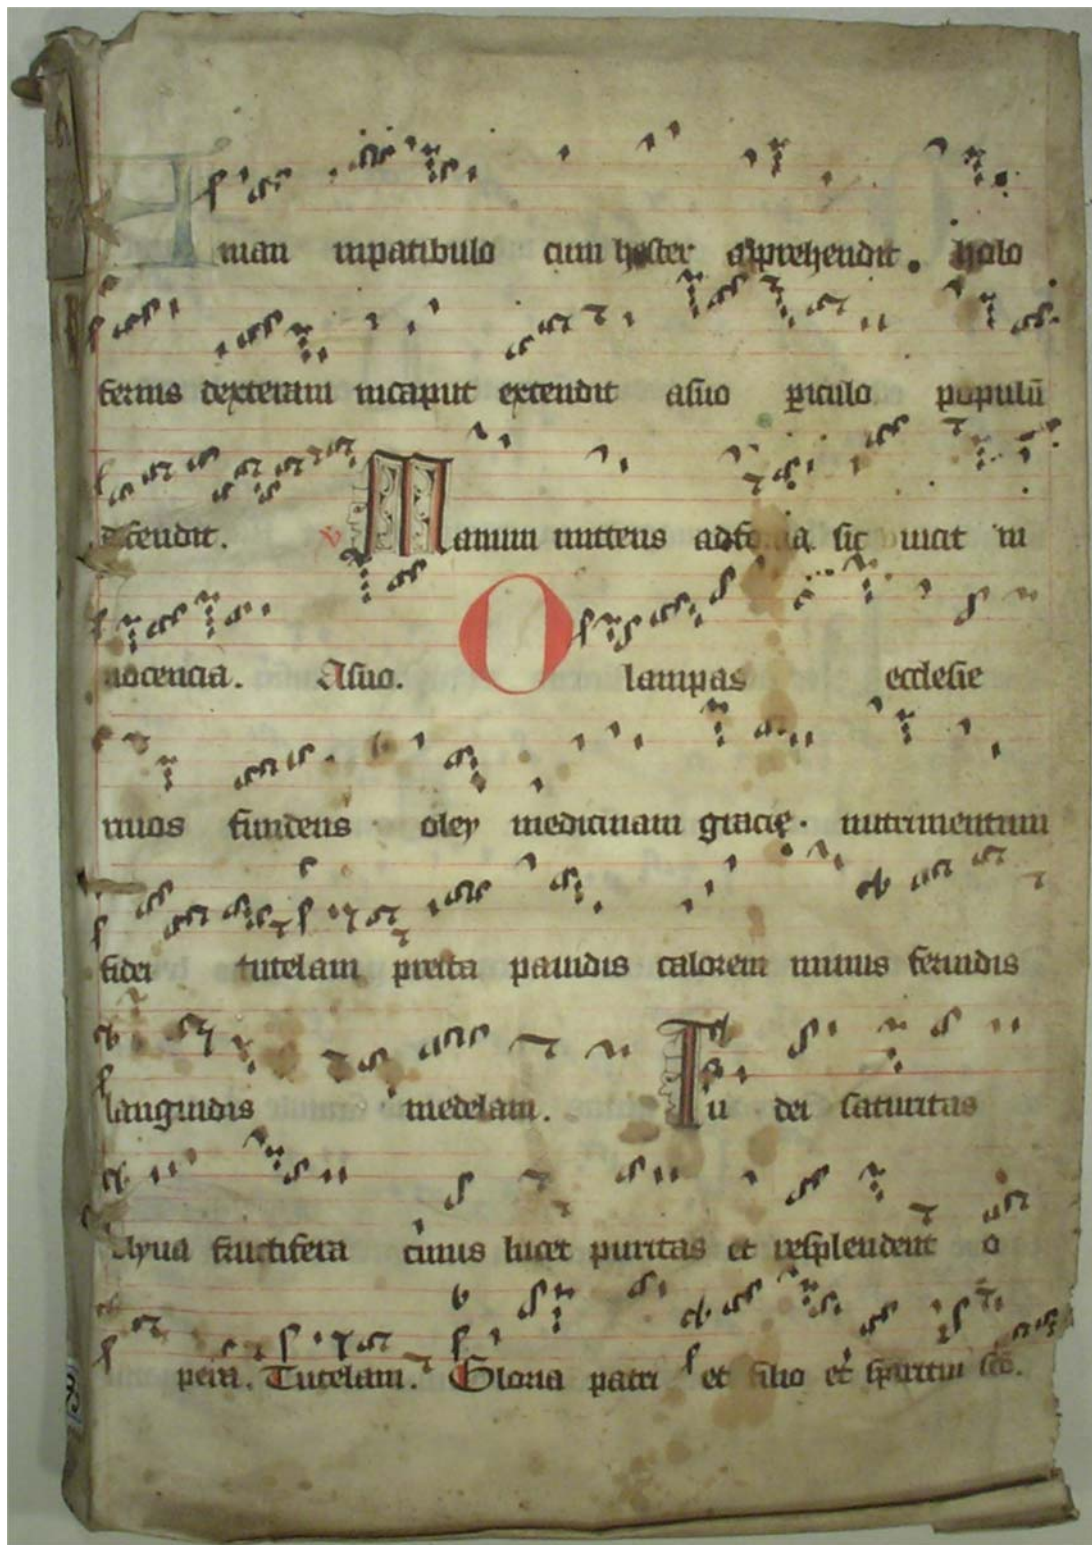 man inpatibulo cum hester apprehendit. holo
fernis dexteram incaput extendit asuo piculo populū
defendit. V Manum mittens ad sic vicit in
nocencia. Asuo. O lampas ecclesie
rivos fundens oley medicinam gracię. nutrimentum
fidei tutelam presta pavidis calorem minus fervidis
languidis medelam. Tu dei saturitas
olyva fructifera cuius lucet puritas et resplendent o
pera. Tutelam. Gloria patri et filio et spiritui scō.